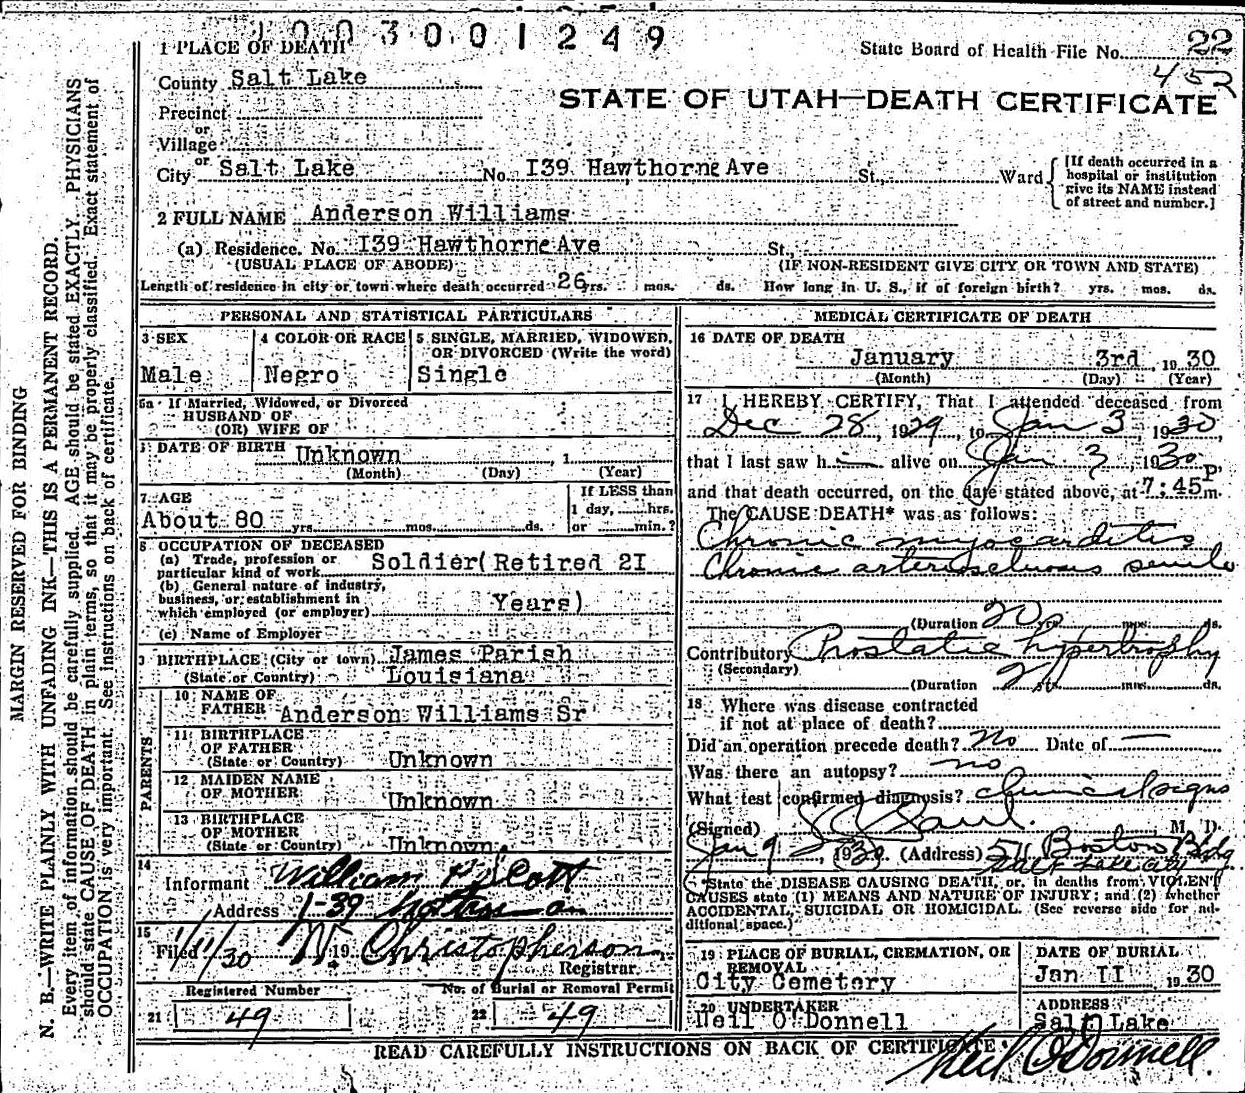 1003001249
State Board of Health File No. 22
452
STATE OF UTAH—DEATH CERTIFICATE
1 PLACE OF DEATH
County Salt Lake
Precinct
or
Village
or
City Salt Lake No. I39 Hawthorne Ave St., Ward
[If death occurred in a hospital or institution give its NAME instead of street and number.]
2 FULL NAME Anderson Williams
(a) Residence. No. I39 Hawthorne Ave St.,
(USUAL PLACE OF ABODE) (IF NON-RESIDENT GIVE CITY OR TOWN AND STATE)
Length of residence in city or town where death occurred 26 yrs. mos. ds. How long in U. S., if of foreign birth? yrs. mos. ds.
PERSONAL AND STATISTICAL PARTICULARS
3 SEX
Male
4 COLOR OR RACE
Negro
5 SINGLE, MARRIED, WIDOWED, OR DIVORCED (Write the word)
Single
5a If Married, Widowed, or Divorced
HUSBAND OF
(OR) WIFE OF
DATE OF BIRTH Unknown 1
(Month) (Day) (Year)
7. AGE
About 80 yrs. mos. ds.
If LESS than
1 day, hrs.
or min.?
8 OCCUPATION OF DECEASED
(a) Trade, profession or particular kind of work Soldier( Retired 2I
(b) General nature of industry, business, or establishment in which employed (or employer) Years)
(c) Name of Employer
9 BIRTHPLACE (City or town) James Parish
(State or Country) Louisiana
PARENTS
10 NAME OF FATHER Anderson Williams Sr
11 BIRTHPLACE OF FATHER (State or Country) Unknown
12 MAIDEN NAME OF MOTHER Unknown
13 BIRTHPLACE OF MOTHER (State or Country) Unknown.
14
Informant William P Scott
Address 139
15
Filed 1/11/30 19 N. Christopherson
Registrar.
Registered Number
21 49
No. of Burial or Removal Permit
22 49
MEDICAL CERTIFICATE OF DEATH
16 DATE OF DEATH
January 3rd, 1930
(Month) (Day) (Year)
17 I HEREBY CERTIFY, That I attended deceased from
Dec 28, 1929, to Jan 3, 1930,
that I last saw h i alive on Jan. 3, 1930
and that death occurred, on the date stated above, at 7:45 P m.
The CAUSE DEATH* was as follows:
Chronic myocarditis
Chronic arteriosclerosis senile
(Duration 20 yrs. mos. ds.
Contributory Prostatic hypertrophy
(Secondary)
(Duration 2 yr mos. ds.
18 Where was disease contracted
if not at place of death?
Did an operation precede death? no Date of —
Was there an autopsy? no
What test confirmed diagnosis? clinical signs
(Signed) Saul. M. D.
Jan 9, 1930. (Address) 571 Boston Bldg
Salt Lake City
*State the DISEASE CAUSING DEATH, or, in deaths from VIOLENT
CAUSES state (1) MEANS AND NATURE OF INJURY; and (2) whether
ACCIDENTAL, SUICIDAL OR HOMICIDAL. (See reverse side for additional space.)
19 PLACE OF BURIAL, CREMATION, OR REMOVAL
City Cemetery
DATE OF BURIAL
Jan II 1930
20 UNDERTAKER
Neil O'Donnell
ADDRESS
Salt Lake
READ CAREFULLY INSTRUCTIONS ON BACK OF CERTIFICATE.
Neil O'Donnell.
MARGIN RESERVED FOR BINDING
N. B.—WRITE PLAINLY WITH UNFADING INK—THIS IS A PERMANENT RECORD.
Every item of information should be carefully supplied. AGE should be stated EXACTLY. PHYSICIANS
should state CAUSE OF DEATH in plain terms, so that it may be properly classified. Exact statement of
OCCUPATION is very important. See instructions on back of certificate.